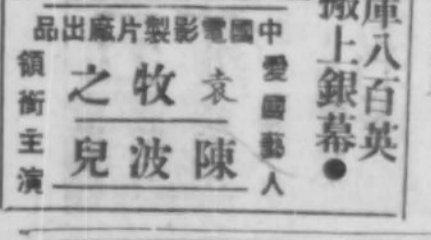 庫八百英
搬上銀幕●
中國電影製片廠出品
愛國藝人
袁牧之
陳波兒
領銜主演